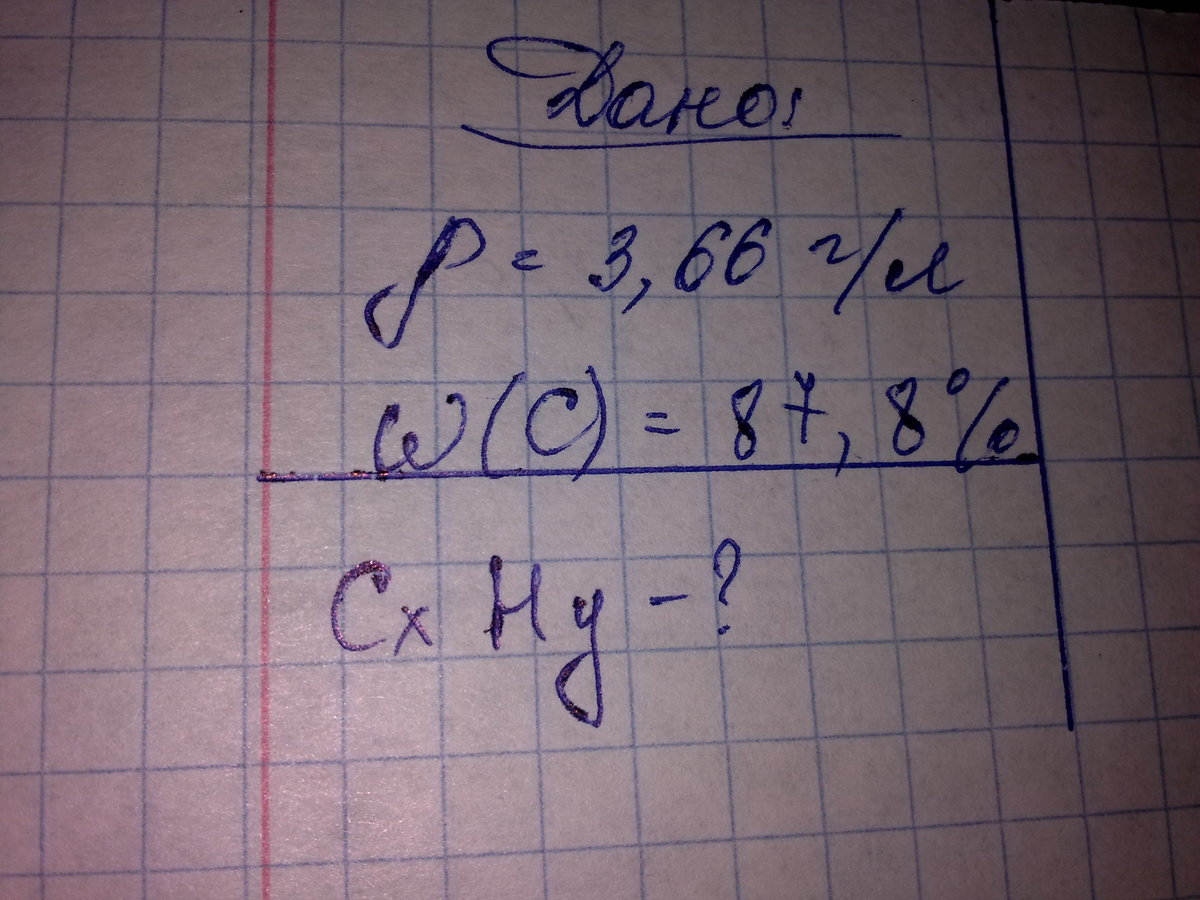 Дано:
ρ = 3,66 г/л
ω(C) = 87,8%
Cx Hy - ?